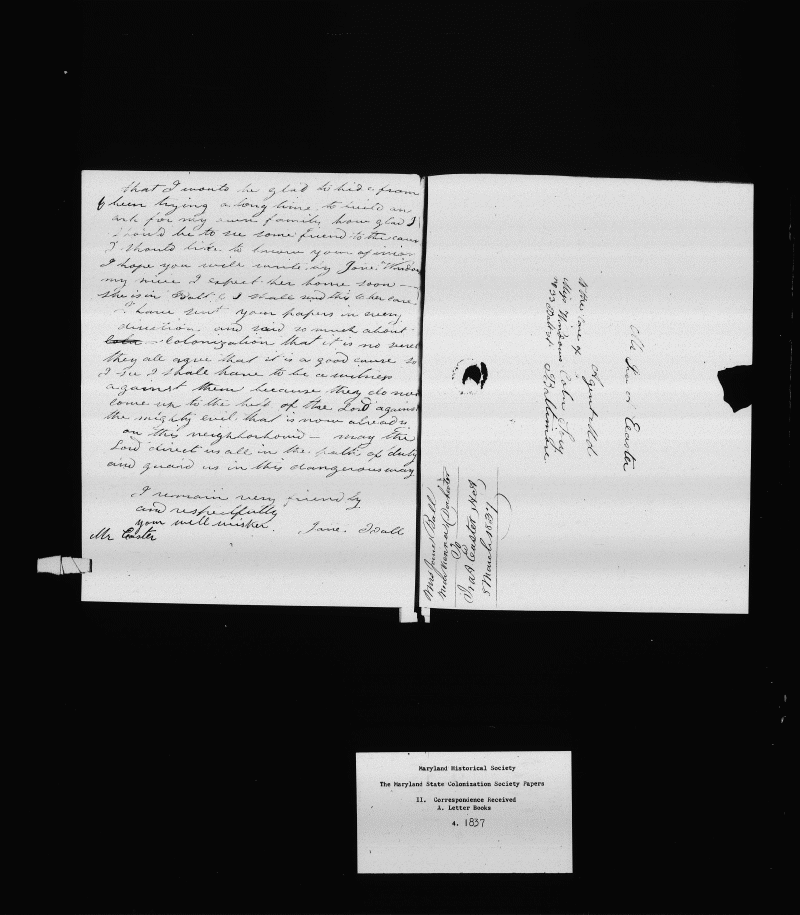 that I would be glad to hid a from
been trying a long time to build an
ark for my own family how glad I
should be to see some friend to the caus
I should like to know your opinion
I hope you will write by Jane Windson
my niece I expect her home soon —
she is in Balt. & I shall send this to her care
I have sent your papers in every
direction and said so much about
Colonization that it is no
they all agree that it is a good cause so
I see I shall have to be a witness
against them because they do not
come up to the help of the Lord against
the mighty evil that is now already
on this neighborhood — may the
Lord direct us all in the path of duty
and guard us in this dangerous way
I remain very friendly
and respectfully
your well wisher. Jane Ball
Mr Easter
Mr Ira A Easter
Agent &
To the care of
Miss
No 33 Baltimore
Mrs Jane Ball
To
Ira A Easter
5 March 1837
Maryland Historical Society
The Maryland State Colonization Society Papers
II. Correspondence Received
A. Letter Books
4. 1837